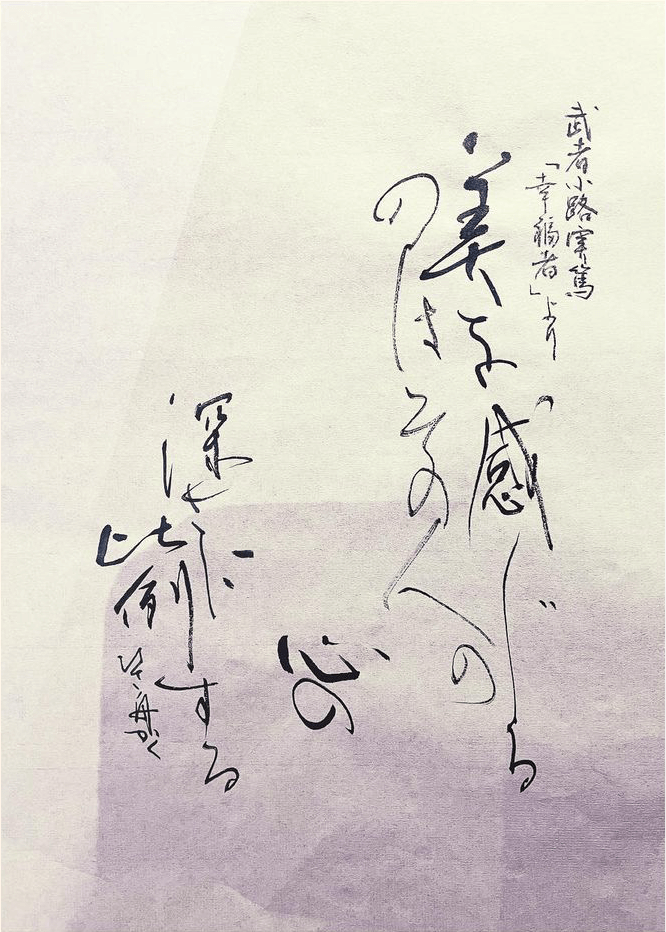 武者小路実篤
「幸福者」より
美を感じる
のはその人の
心の
深さに
比例する
かく